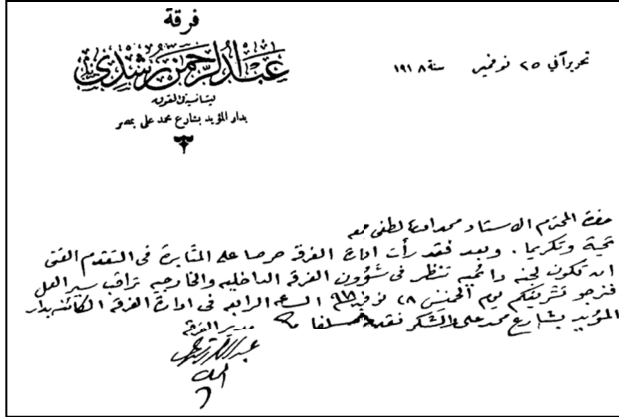 فرقة
عبد الرحمن رشدي
بدار المؤيد بشارع محمد على بمصر
تحريرا في ٢٥ نوفمبر سنة ١٩١٨
حضرة المحترم الاستاذ محمد لطفى جمعه
تحية وتكريما . وبعد فقد رأت ادارة الفرقة حرصا على المثابرة فى التقدم الفنى
ان تكون لجنه دائميه تنظر فى شؤون الفرقة الداخليه والخارجيه تراقب سير العمل
فنرجو تشريفكم يوم الخميس ٢٨ نوفمبر ٩١٨ الساعه الرابعه فى ادارة الفرقة الكائنه بدار
المؤيد بشارع محمد على والشكر نقدمه سلفا
مدير الفرقة